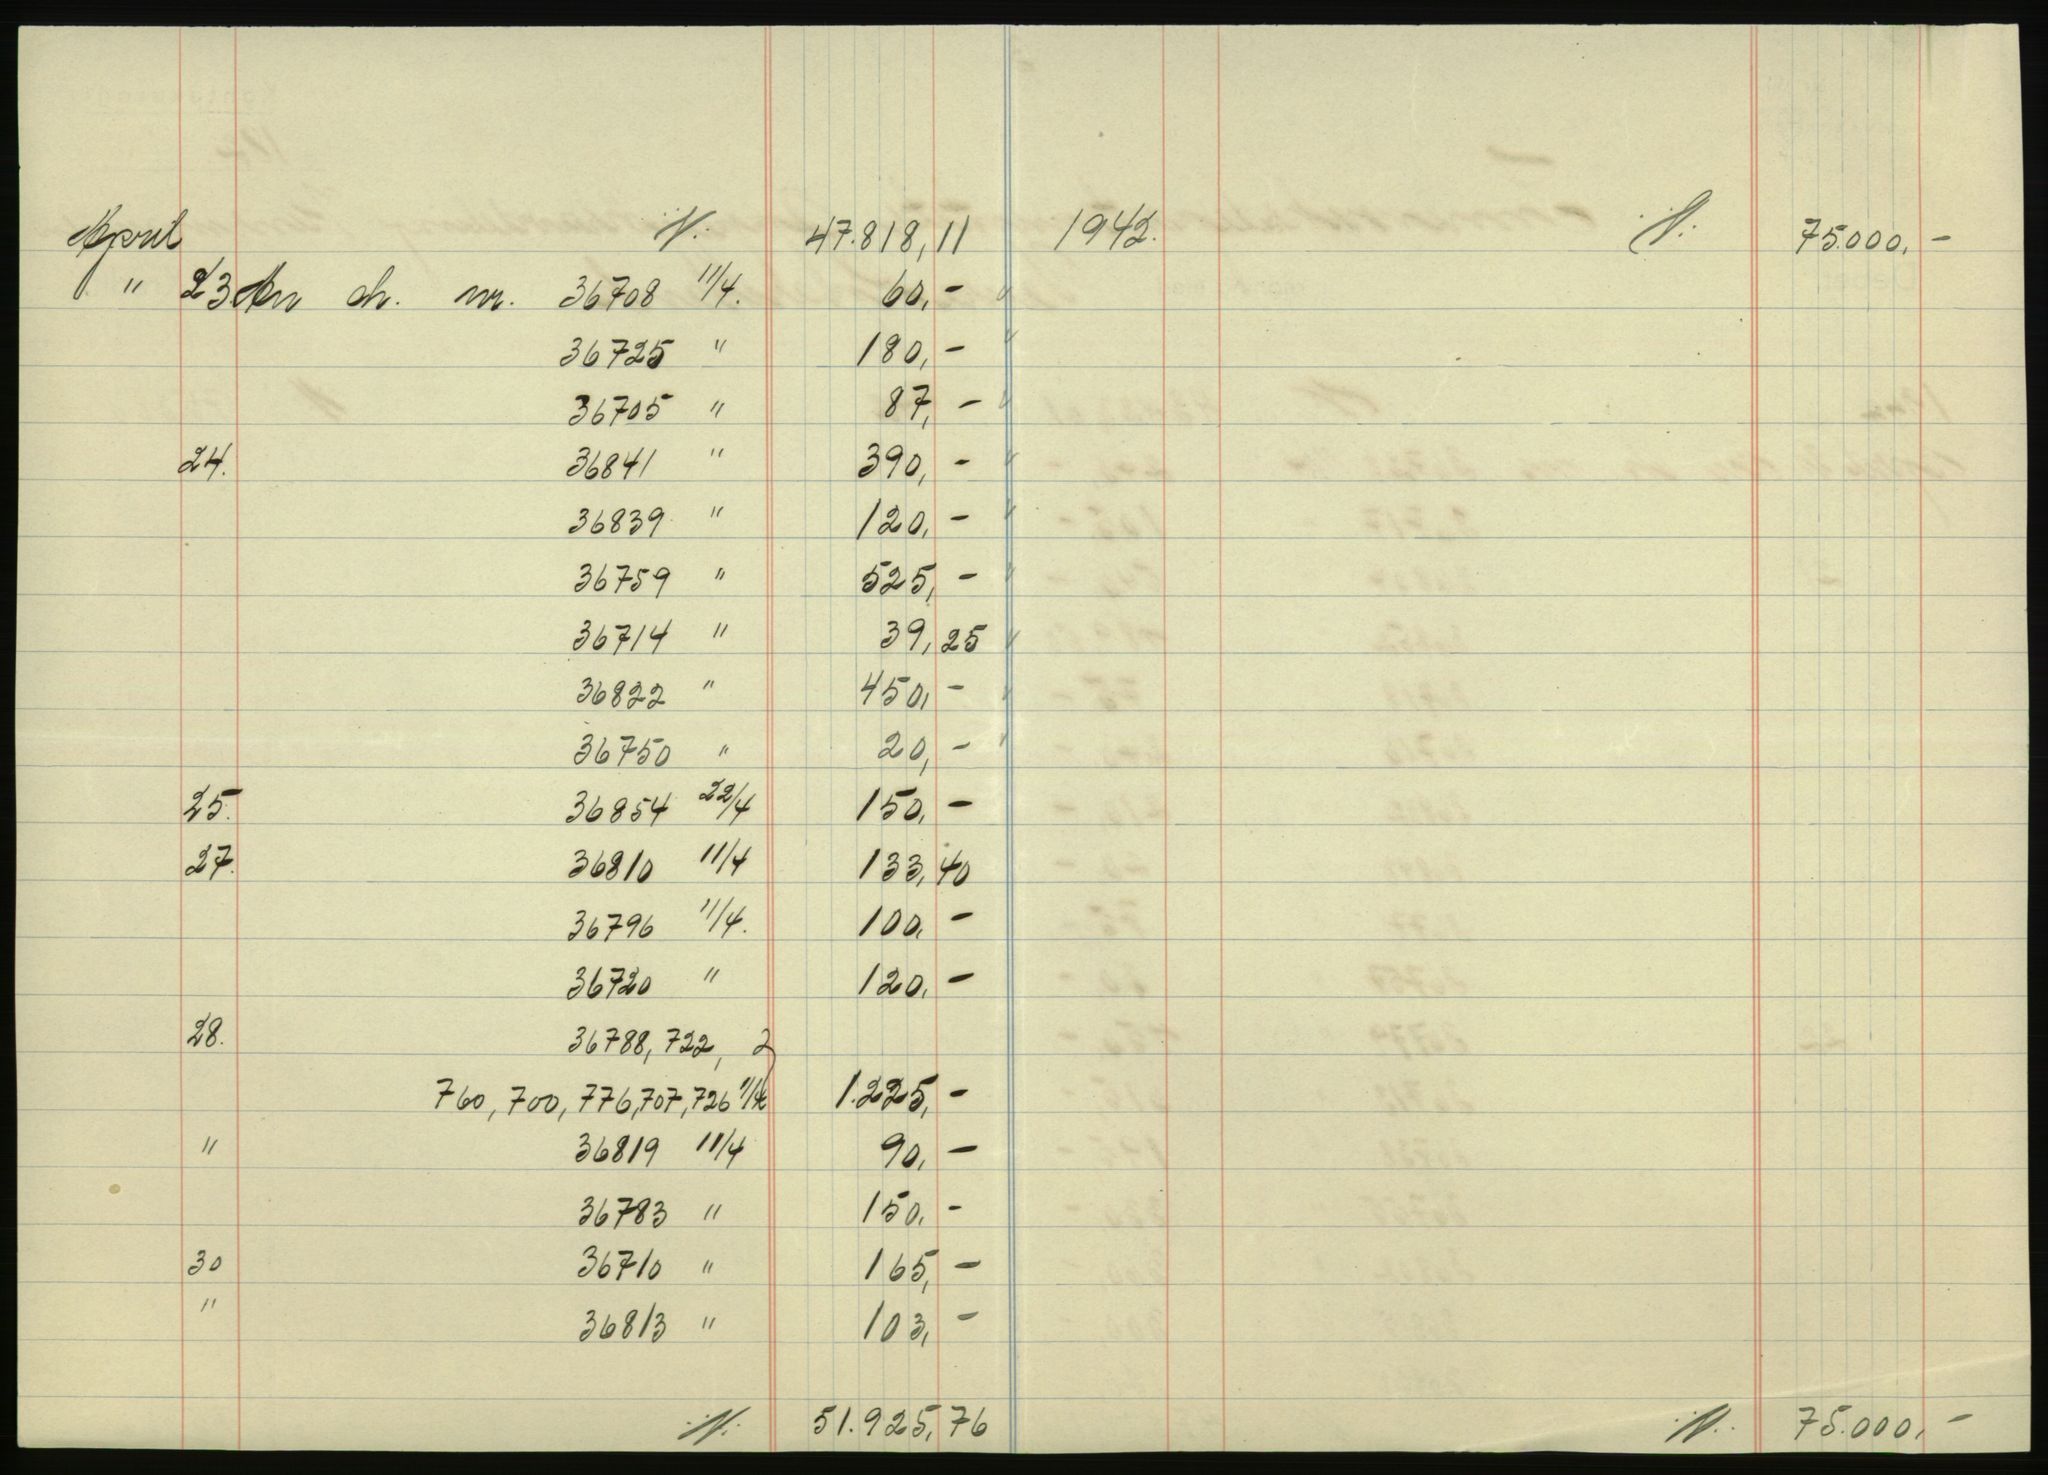 April ·/· 47.818,11
" 23 An ch. nr. 36708 11/4. 60,-
36725 " 180,-
36705 " 87,-
24. 36841 " 390,-
36839 " 120,-
36759 " 525,-
36714 " 39,25
36822 " 450,-
36750 " 20,-
25. 36854 22/4 150,-
27. 36810 11/4 133,40
36796 11/4. 100,-
36720 " 120,-
28. 36788, 722,
760, 700, 776, 707, 726 11/4 1.225,-
" 36819 11/4 90,-
36783 " 150,-
30 36710 " 165,-
" 36813 " 103,-
51.925,76
1942. 75.000,-
75.000,-